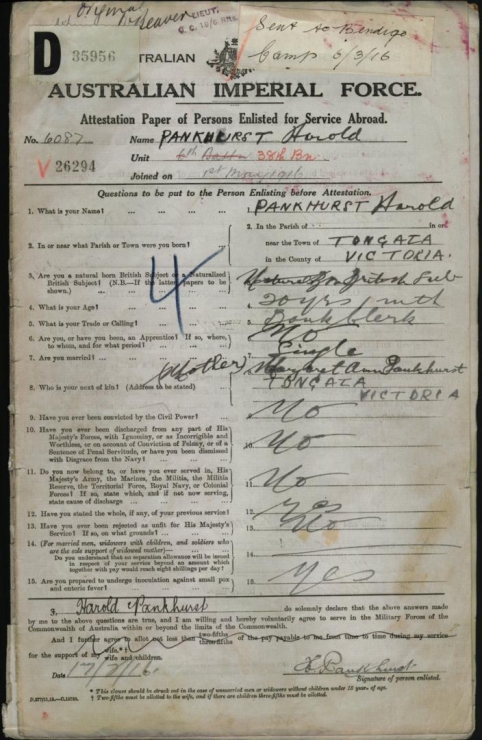 LIEUT.
Sent to Bendigo
Camp 6/3/16
D 35956
AUSTRALIAN
AUSTRALIAN IMPERIAL FORCE.
Attestation Paper of Persons Enlisted for Service Abroad.
No. 6087 Name PANKHURST Harold
V 26294
Unit 6th Battn 38th Bn
Joined on 1st May 1916
Questions to be put to the Person Enlisting before Attestation.
1. What is your Name? ... ... ... ... 1. PANKHURST Harold
2. In or near what Parish or Town were you born? ...
2. In the Parish of In or
near the Town of TONGALA
in the County of VICTORIA.
3. Are you a natural born British Subject or a Naturalized
British Subject? (N.B.—If the latter, papers to be
shown.)
3. Natural Born British Sub
4. What is your Age? 4. 20 yrs 1 mth
5. What is your Trade or Calling? 5. Bank Clerk
6. Are you, or have you been, an Apprentice? If so, where,
to whom, and for what period?
6. No
7. Are you married? 7. Single
8. Who is your next of kin? (Address to be stated)
Mother
8. Margaret Ann Pankhurst
TONGALA
VICTORIA
9. Have you ever been convicted by the Civil Power? 9. No
10. Have you ever been discharged from any part of His
Majesty's Forces, with Ignominy, or as Incorrigible and
Worthless, or on account of Conviction of Felony, or of a
Sentence of Penal Servitude, or have you been dismissed
with Disgrace from the Navy?
10. No
11. Do you now belong to, or have you ever served in, His
Majesty's Army, the Marines, the Militia, the Militia
Reserve, the Territorial Force, Royal Navy, or Colonial
Forces? If so, state which, and if not now serving,
state cause of discharge
11. No
12. Have you stated the whole, if any, of your previous service? 12. Yes
13. Have you ever been rejected as unfit for His Majesty's
Service? If so, on what grounds?
13. No
14. (For married men, widowers with children, and soldiers who
are the sole support of widowed mother)—
Do you understand that no separation allowance will be issued
in respect of your service beyond an amount which
together with pay would reach eight shillings per day?
14.
15. Are you prepared to undergo inoculation against small pox
and enteric fever?
15. Yes
4
I, Harold Pankhurst do solemnly declare that the above answers made
by me to the above questions are true, and I am willing and hereby voluntarily agree to serve in the Military Forces of the
Commonwealth of Australia within or beyond the limits of the Commonwealth.
And I further agree to allot not less than two-fifths three-fifths of the pay payable to me from time to time during my service
for the support of my wife.*† wife and children.
Date
H Pankhurst
Signature of person enlisted.
* This clause should be struck out in the case of unmarried men or widowers without children under 18 years of age.
† Two-fifths must be allotted to the wife, and if there are children three-fifths must be allotted.